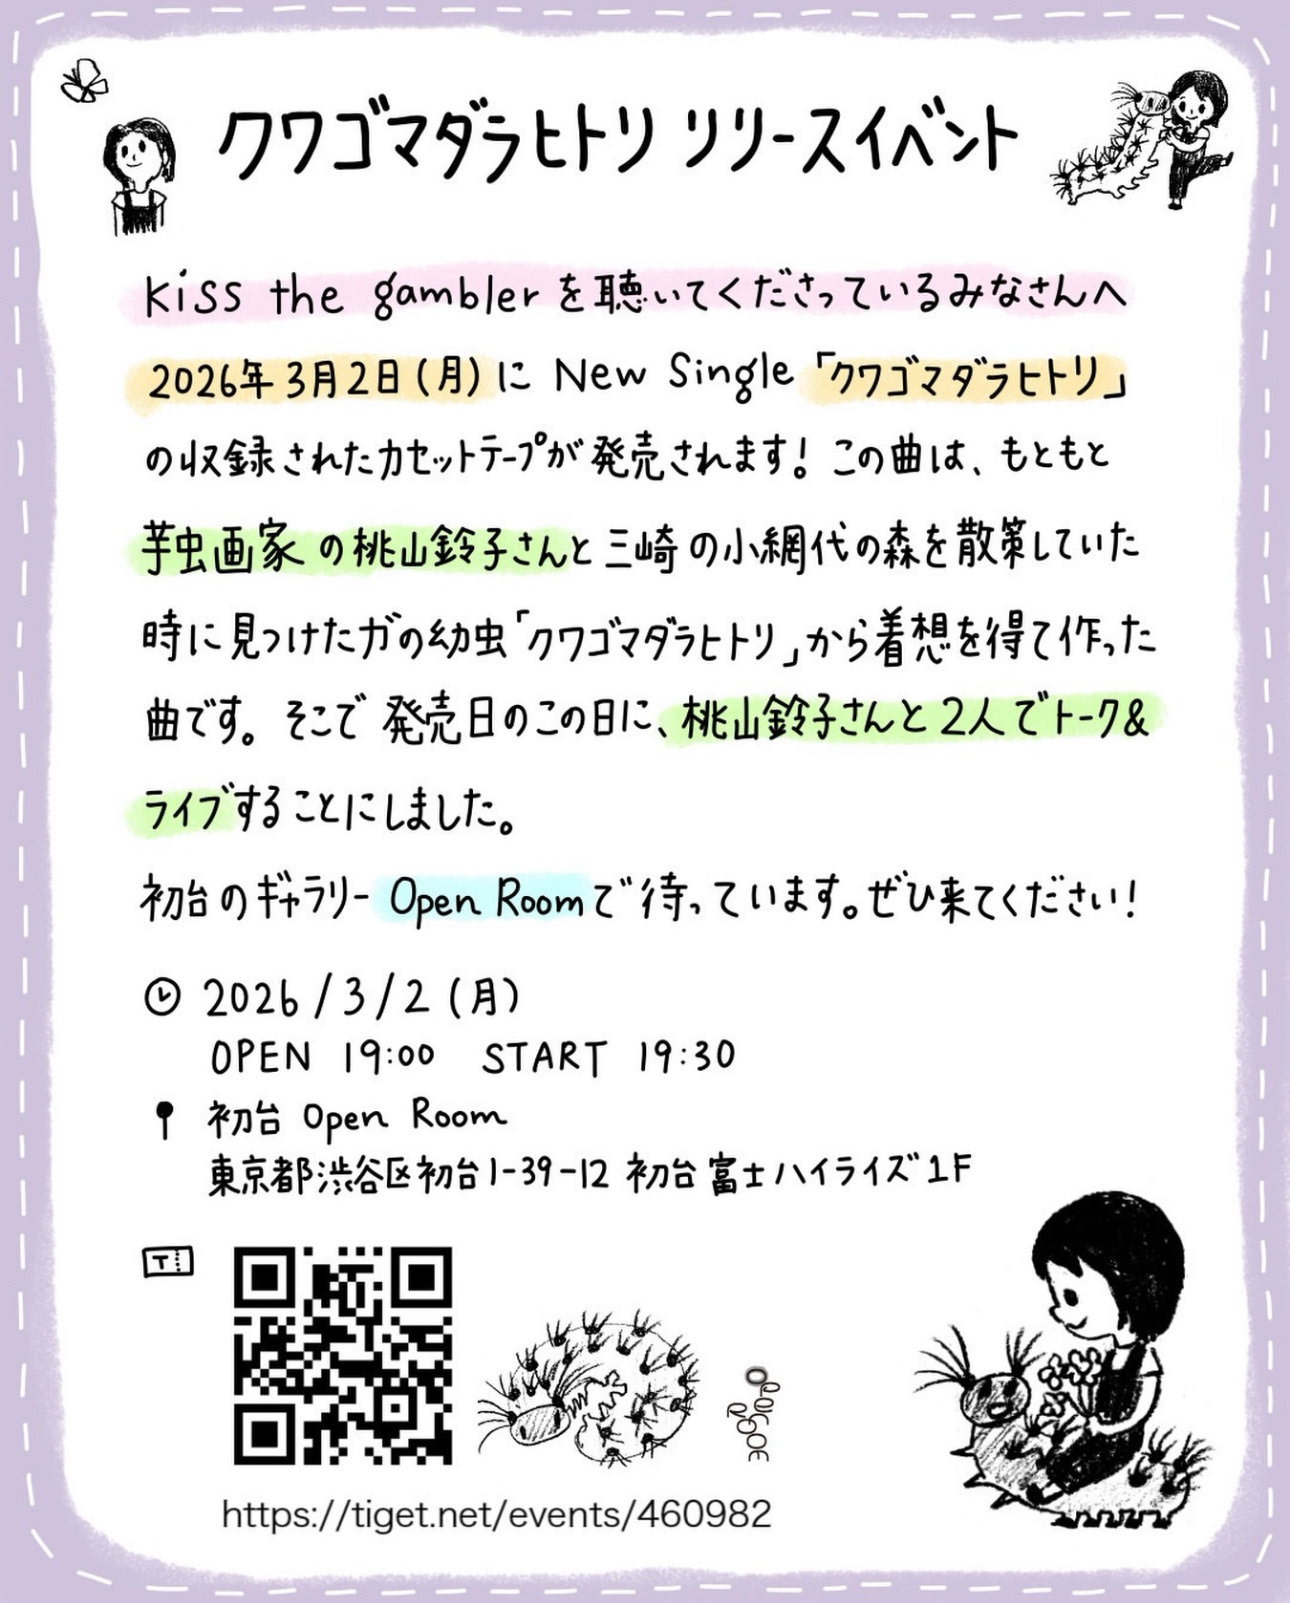 クワゴマダラヒトリ リリースイベント
kiss the gambler を聴いてくださっているみなさんへ
2026年3月2日(月)に New Single「クワゴマダラヒトリ」
の収録されたカセットテープが発売されます！この曲は、もともと
芋虫画家の桃山鈴子さんと三崎の小網代の森を散策していた
時に見つけたガの幼虫「クワゴマダラヒトリ」から着想を得て作った
曲です。そこで発売日のこの日に、桃山鈴子さんと2人でトーク&
ライブすることにしました。
初台のギャラリー Open Roomで待っています。ぜひ来てください！
2026/3/2(月)
OPEN 19:00 START 19:30
初台 Open Room
東京都渋谷区初台1-39-12 初台富士ハイライズ1F
T
https://tiget.net/events/460982